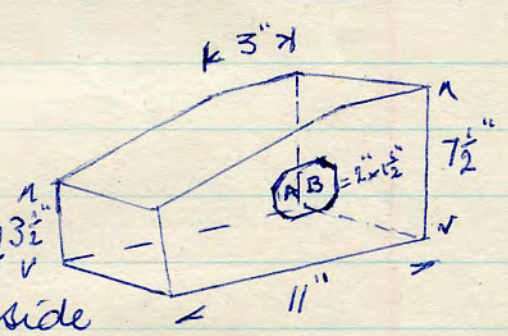 3"
7½"
A B = 2" x 1½"
3½"
11"
side